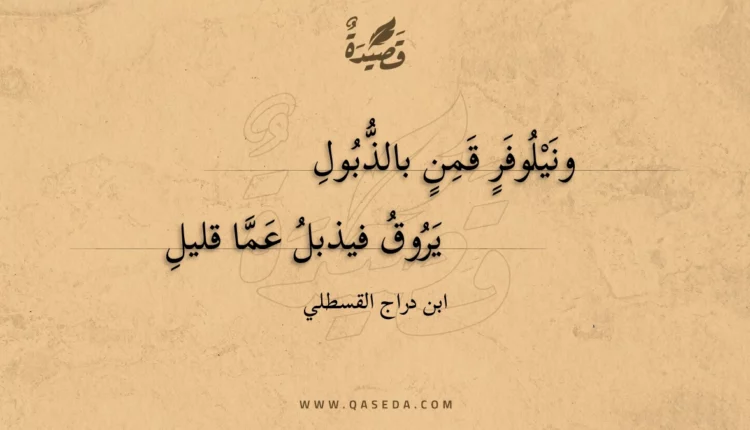 قَصِيْدَةٌ
ونَيْلُوفَرٍ قَمِنٍ بالذُّبُولِ
يَرُوقُ فيذبلُ عَمَّا قليلِ
ابن دراج القسطلي
WWW.QASEDA.COM